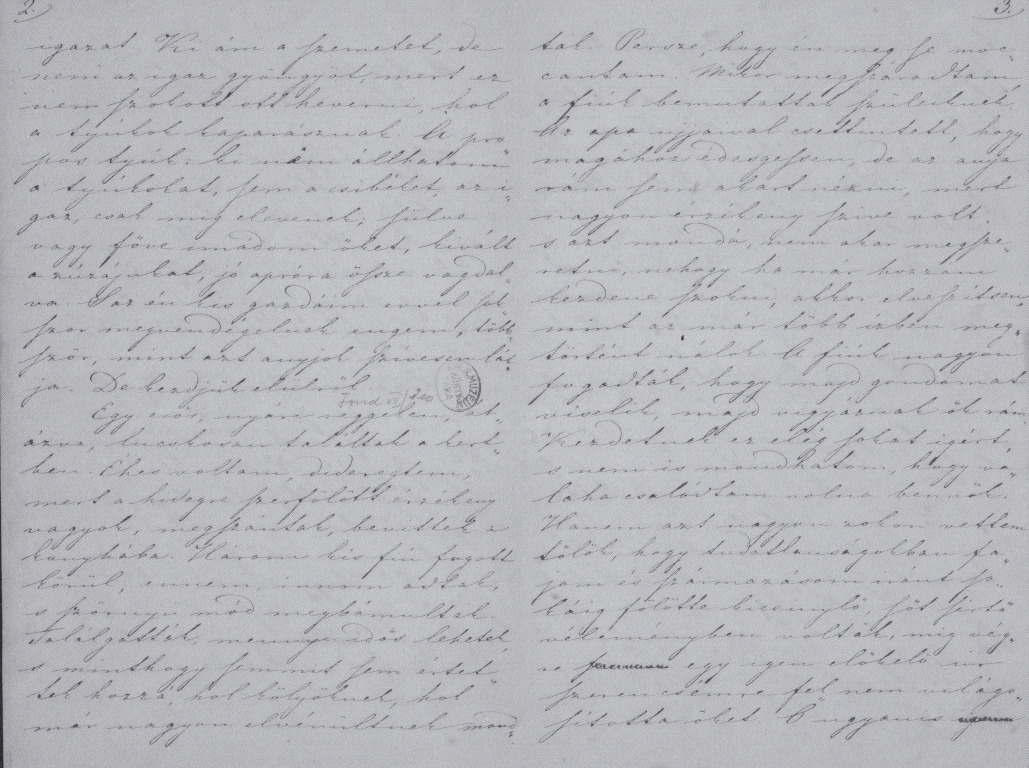 2)
igazat. Ki ám a szemetet, de
nem az igaz gyöngyöt, mert ez
nem szokott ott heverni, hol
a tyúkok kaparásznak. A pro
pos tyúk: ki nem állhatom
a tyúkokat, sem a csibéket, az i„
gaz, csak míg elevenek; sülve
vagy főve imádom őket, kivált
a zúzájukat, jó apróra össze vagdal„
va. S az én kis gazdáim evvel sok„
szor megvendégelnek engem, több„
ször, mint azt anyjok szívesen lát„
ja. De kezdjük elülről.
Egy esős, nyári reggelen,
ázva, lucskosan találtak a kert„
ben. Éhes voltam, dideregtem,
mert a hidegre szerfölött érzékeny
vagyok, megszántak, bevittek a
konyhába. Három kis fiú fogott
körül, ennem innom adtak,
s szörnyü mód megbámultak.
Találgatták, mennyi idős lehetek,
s minthogy semmit sem értet„
tek hozzá, hol kölyöknek, hol
már nagyon elvénültnek mond„
3.)
tak. Persze, hogy én meg se moc„
cantam. Mikor megszáradtam
a fiúk bemutattak szüleiknek.
Az apa ujjaival csettintett, hogy
magához édesgessen, de az anyja
rám sem akart nézni, mert
nagyon érzékeny szive volt
s azt mondá, nem akar megsze„
retni, nehogy ha már hozzám
kezdene szokni, akkor elveszítsen,
mint az már több izben meg„
történt nálok. A fiúk nagyon
fogadták, hogy majd gondomat
viselik, majd vigyáznak ők rám.
Kezdetnek ez elég sokat igért
s nem is mondhatom, hogy va„
laha csalódtam volna bennök.
Hanem azt nagyon zokon vettem
tőlök, hogy tudatlanságokban fa„
jom és származásom iránt so„
káig fölötte kicsinylő, sőt sértő
véleményben voltak, míg vég„
re egy igen előkelő úr
szerencsémre fel nem világo„
sította őket. Ő ugyanis